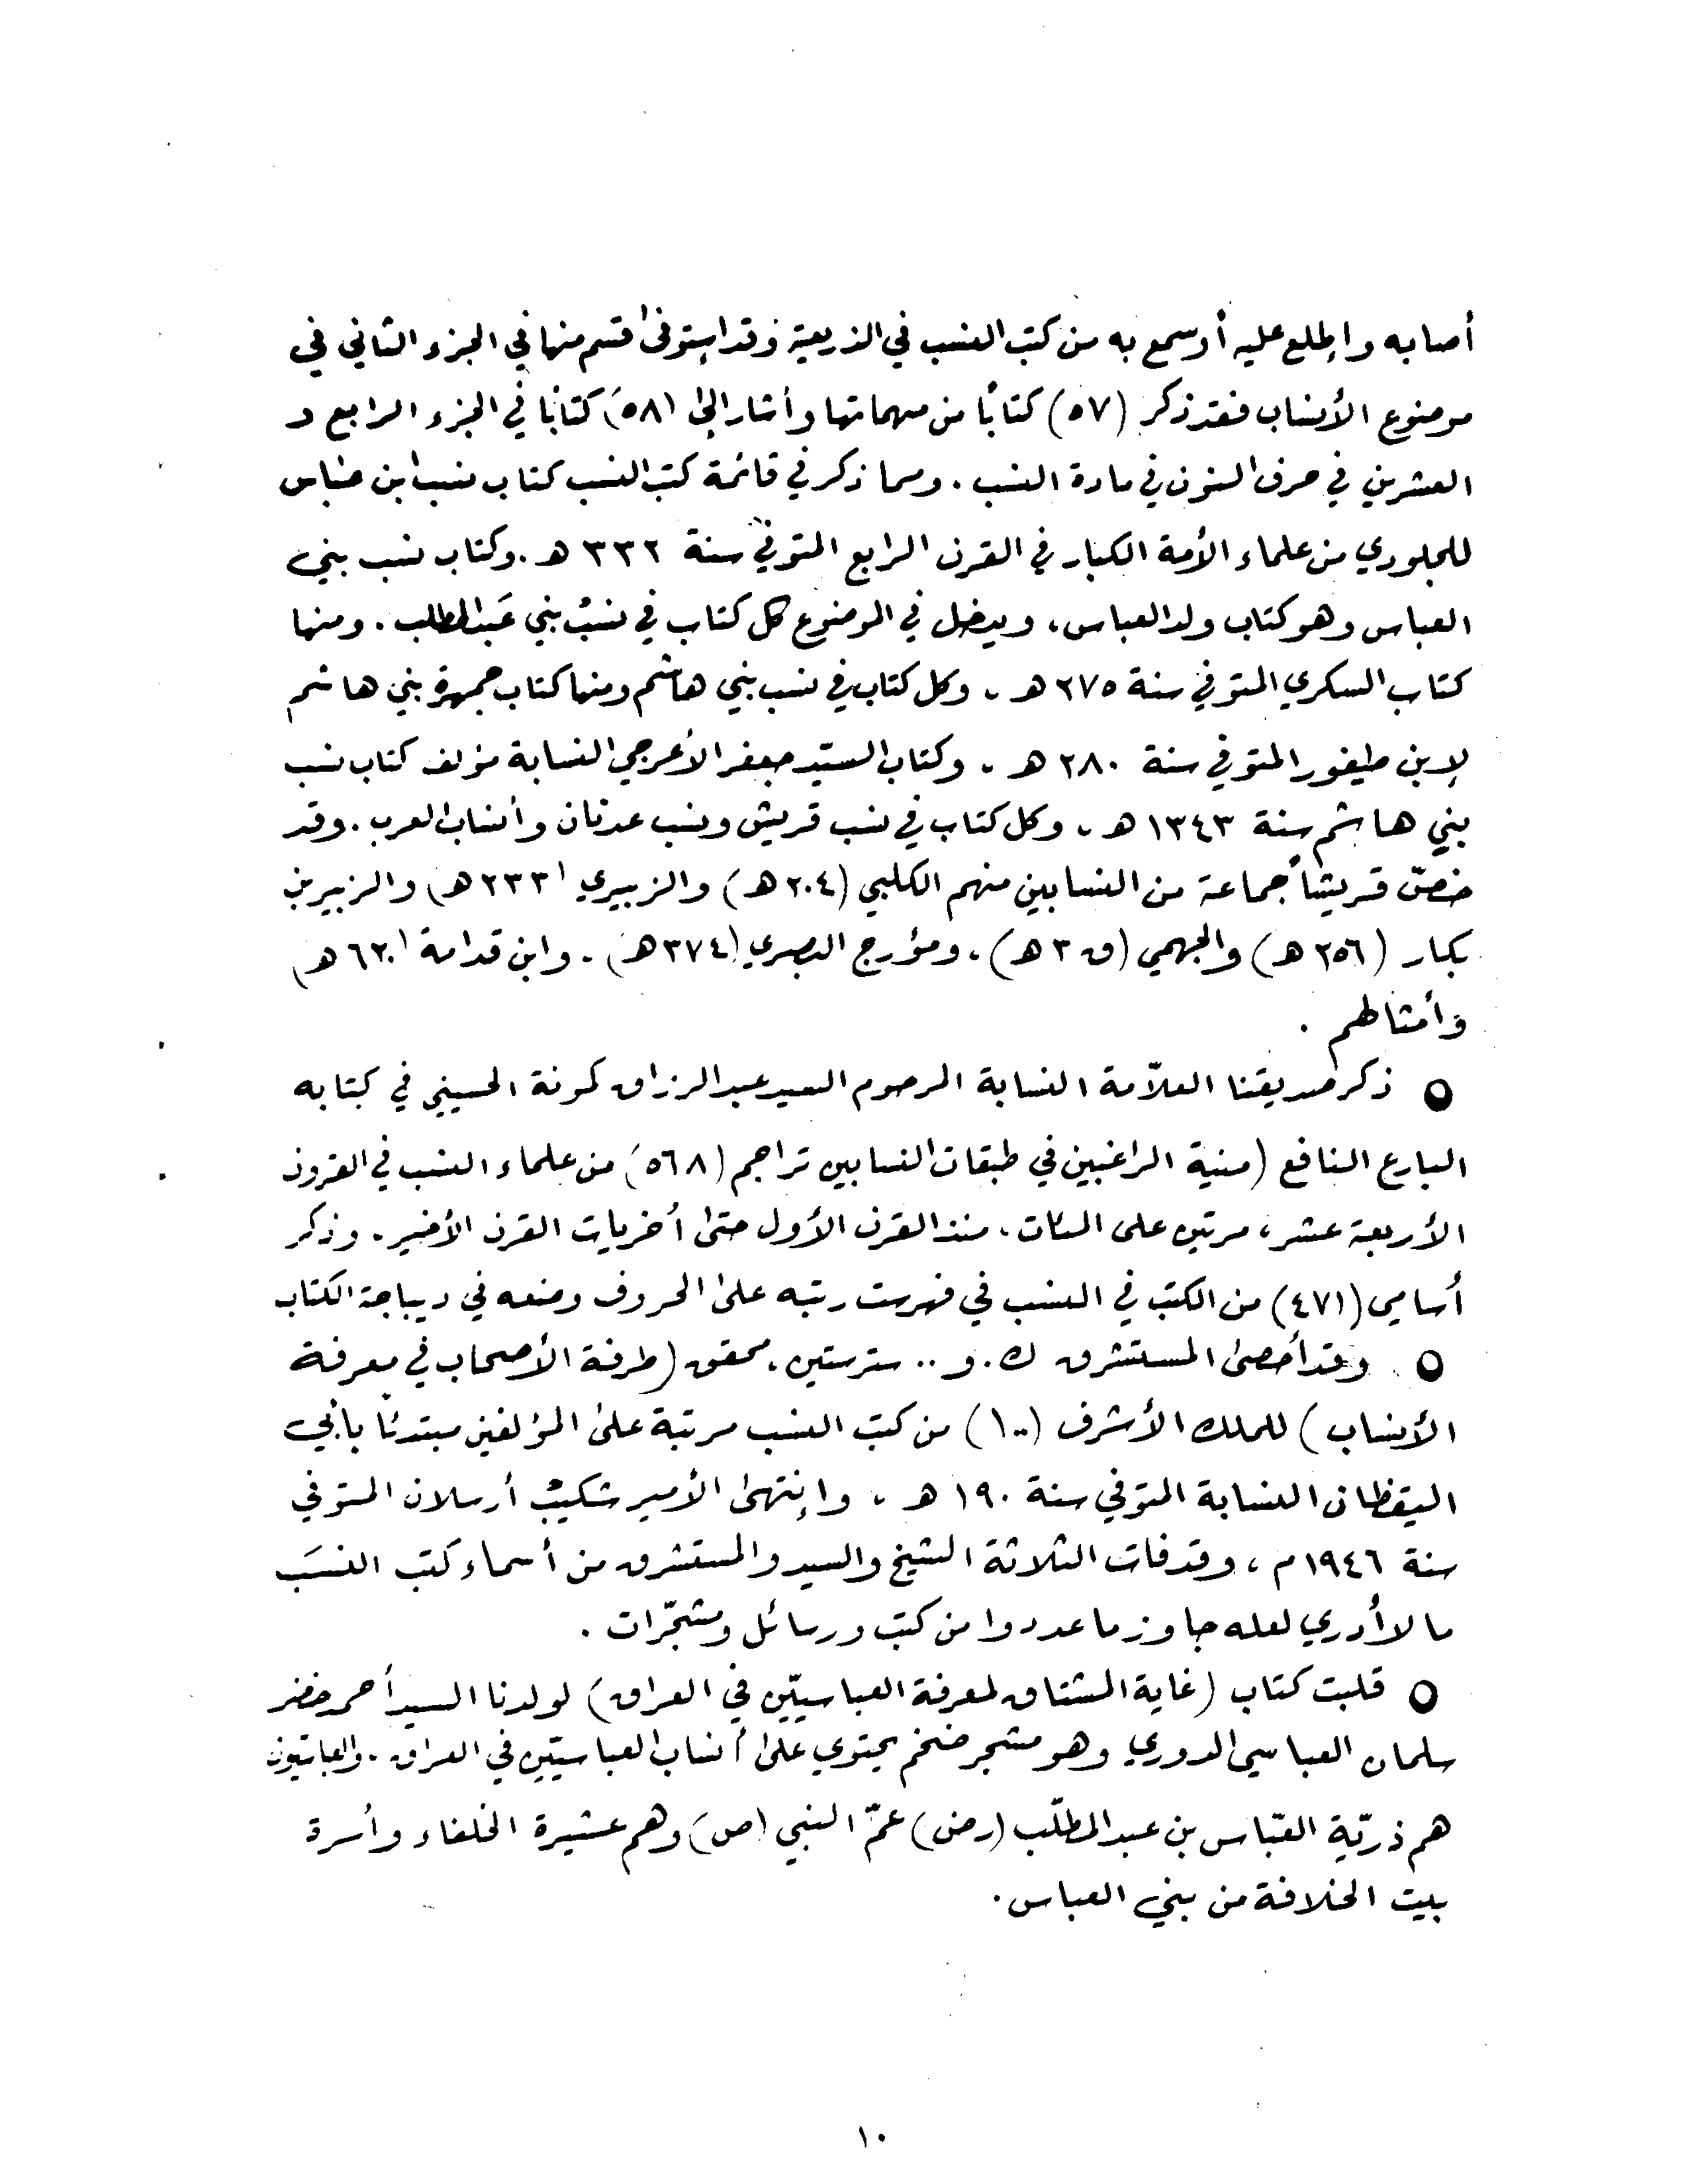 أصابه واطلع عليه أو سمع به من كتب النسب في الذريعة وقد استوفى قسم منها في الجزء الثاني في
موضوع الأنساب فقد ذكر (٥٧) كتابًا من مهماتها وأشار إلى (٥٨١) كتابًا في الجزء الرابع و
العشرين في حرف النون في مادة النسب . ومما ذكر في قائمة كتب النسب كتاب نسب ابن عباس
للجلودي من علماء الأمة الكبار في القرن الرابع المتوفي سنة ٣٣٢ هـ . وكتاب نسب بني
العباس وهو كتاب ولد العباس ، ويدخل في الموضوع كل كتاب في نسب بني عَبد المطلب . ومنها
كتاب السكري المتوفي سنة ٢٧٥ هـ ، وكل كتاب في نسب بني هاشم ومنها كتاب جمهرة بني هاشم
لإبن طيفور المتوفي سنة ٢٨٠ هـ ، وكتاب السيّد جعفر الأعرجي النسابة مؤلف كتاب نسب
بني هاشم سنة ١٣٤٣ هـ ، وكل كتاب في نسب قريش ونسب عدنان وأنساب العرب . وقد
خصّ قريشاً جماعة من النسابين منهم الكلبي (٢٠٤ هـ) والزبيري (٢٣٣ هـ) والزبير بن
بكار (٢٥٦ هـ) والجهمي (ق ٣ هـ) ، ومؤرج البصري (٣٧٤ هـ) . وابن قدامة (٦٢٠ هـ)
وأمثالهم .
○ ذكر صديقنا العلاّمة النسابة المرحوم السيد عبد الرزاق كمونة الحسيني في كتابه
البارع النافع (منية الراغبين في طبقات النسابين تراجم (٥٦٨) من علماء النسب في القرون
الأربعة عشر ، مرتين على المئات ، منذ القرن الأول حتى أخريات القرن الأخير . وذكر
أسامي (٤٧١) من الكتب في النسب في فهرست رتبه على الحروف وضعه في ديباجة الكتاب
○ وقد أحصى المستشرق ك . و .. سترستين ، محقق (طرفة الأصحاب في معرفة
الأنساب) للملك الأشرف (١٠٠) من كتب النسب مرتبة على المؤلفين مبتدئًا بأبي
اليقظان النسابة المتوفي سنة ١٩٠ هـ ، وإنتهى الأمير شكيب أرسلان المتوفي
سنة ١٩٤٦ م ، وقد فات الثلاثة الشيخ والسيد والمستشرق من أسماء كتب النسَب
ما لا أدري لعله جاوز ما عددوا من كتب ورسائل ومشجّرات .
○ قلبت كتاب (غاية المشتاق لمعرفة العباسيّين في العراق) لولدنا السيد أحمد خضر
سلمان العباسي الدوري وهو مشجر ضخم يحتوي على أنساب العباسيّين في العراق . والعباسيون
هم ذريّة العبّاس بن عبد المطلّب (رض) عمّ النبي (ص) وهم عشيرة الخلفاء وأسرة
بيت الخلافة من بني العباس .
١٠